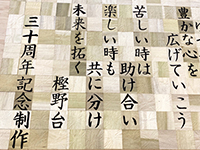 豊かな心を
広げていこう
苦しい時は
助け合い
楽しい時も
共に分け
未来を拓く
樫野台
三十周年記念制作